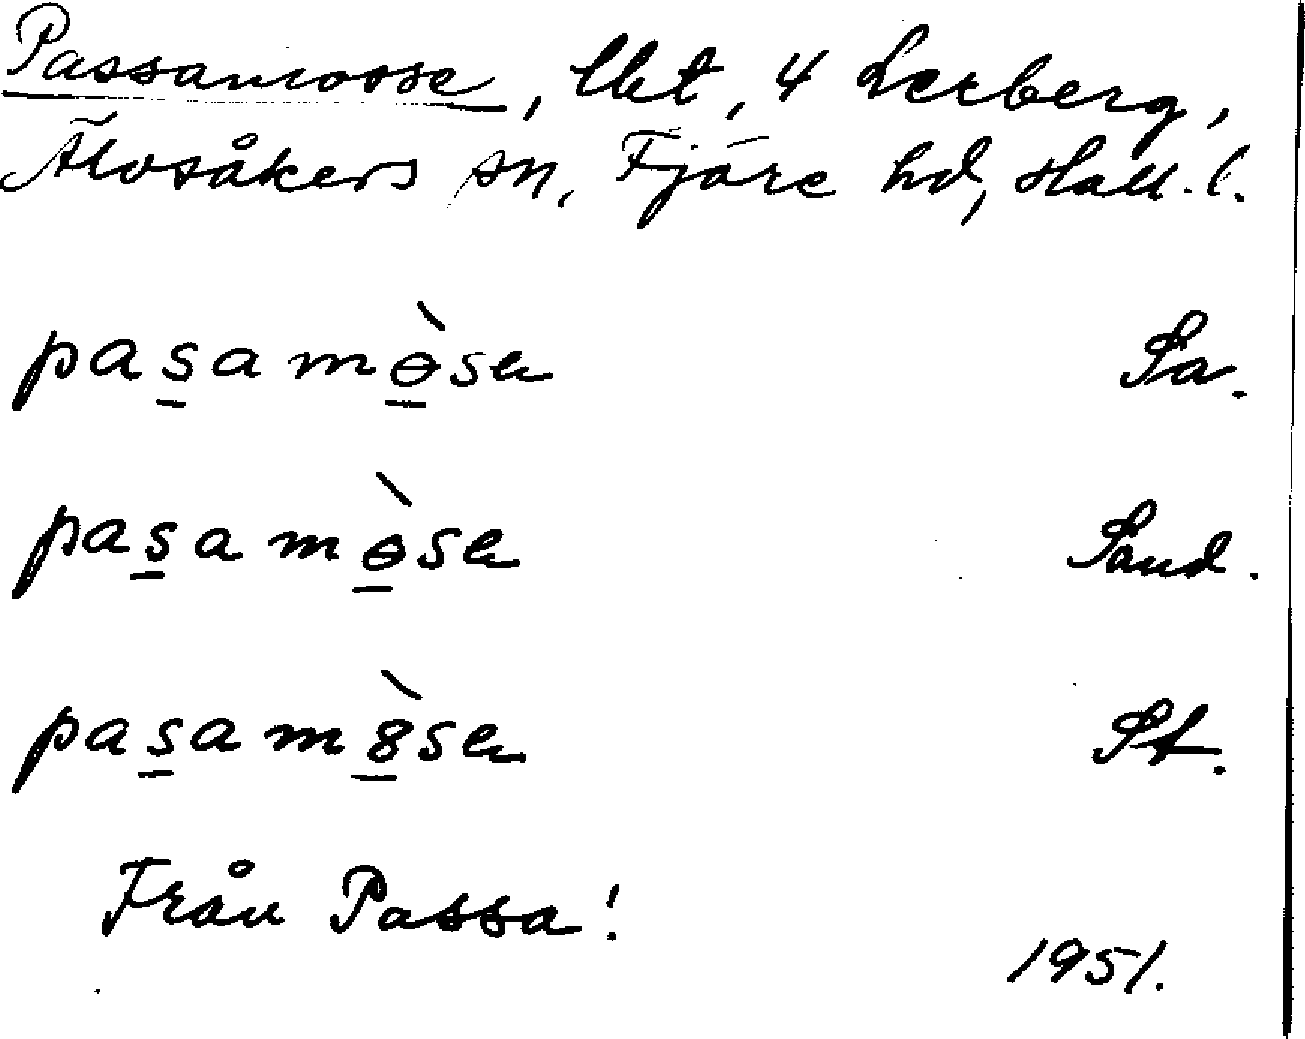 Passamosse, lbt, 4 Lerberg,
Älvsåkers sn, Fjäre hd, Hall. l.
pas̲amɵ̲̀sen Sa.
pas̲amɵ̲̀sen Sand.
pas̲am8̲̀sen St.
Från Passa!
1951.